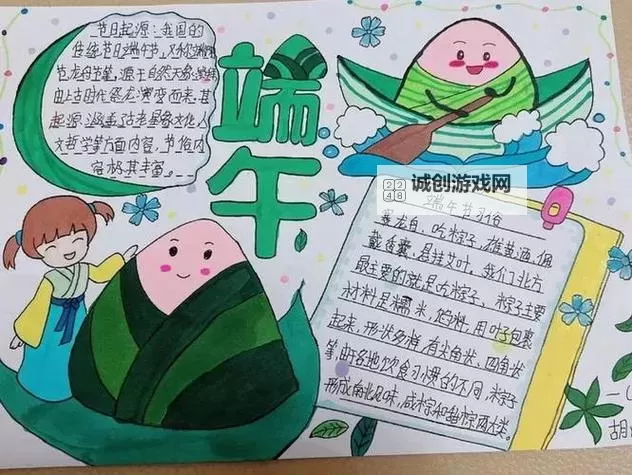 节日起源:我国的
传统节日端午节,又称端阳
节龙舟节等,源于自然天象崇拜
由上古时代祭龙演变而来,其
起源涵盖了古老星象文化,人
文哲学等方面内容,节俗内
容极其丰富。
端
午
2248
诚创游戏网
端午节习俗
赛龙舟、吃粽子、雄黄酒、佩
戴香囊、悬挂艾叶,我们北方
最主要的就是吃粽子,粽子主要
材料是糯米,馅料,用叶子包裹
起来,形状多样,有尖角状,四角状
等,由于各地饮食习惯的不同,粽子
形成南北风味,咸粽和甜粽两大类。
胡